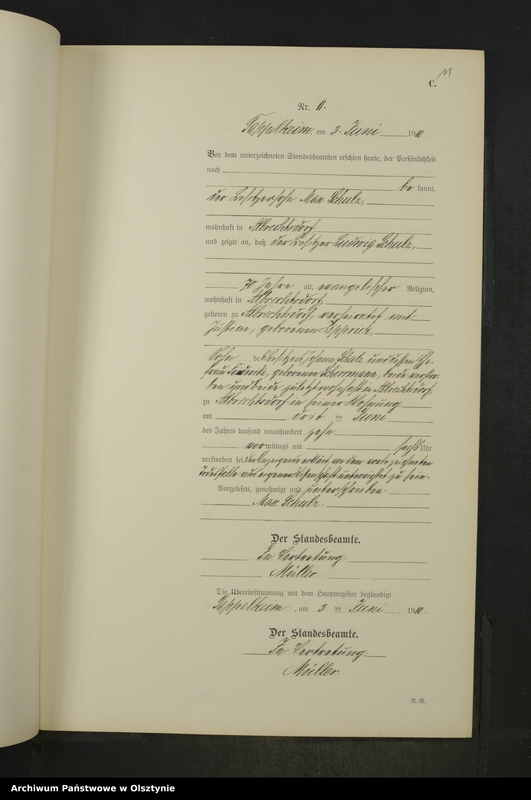 11
C.
Nr. 11.
Teppelheim, am 3. Juni 1910.
Vor dem unterzeichneten Standesbeamten erschien heute, der Persönlichkeit
nach
be kannt,
der Besitzersohn Max Schulz,
wohnhaft in Albrechtsdorf,
und zeigte an, daß der Besitzer Ludwig Schulz,
70 Jahre alt, evangelischer Religion,
wohnhaft in Albrechtsdorf,
geboren zu Albrechtsdorf, verheiratet mit
Justine, geborenen
Sohn Besitzers Johann Schulz und dessen Ehe-
frau geborenen beide verstor-
ben und beide zuletzt wohnhaft in Albrechtsdorf,
zu Albrechtsdorf in seiner Wohnung
am dritten Juni
des Jahres tausend neunhundert zehn
vormittags um sechs Uhr
verstorben sei. Der Anzeigende erklärt von dem vorbezeichneten
Sterbefalle aus eigener Wissenschaft unterrichtet zu sein.
Vorgelesen, genehmigt und unterschrieben
Max Schulz.
Der Standesbeamte.
In Vertretung
Müller.
Die Übereinstimmung mit dem Hauptregister beglaubigt
Teppelheim, am 3 ten Juni 1910.
Der Standesbeamte.
In Vertretung
Müller.
N.-R.
Archiwum Państwowe w Olsztynie